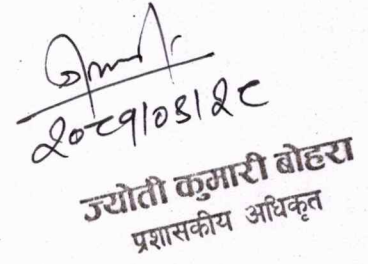 २०८१।०३।२८
ज्योती कुमारी बोहरा
प्रशासकीय अधिकृत